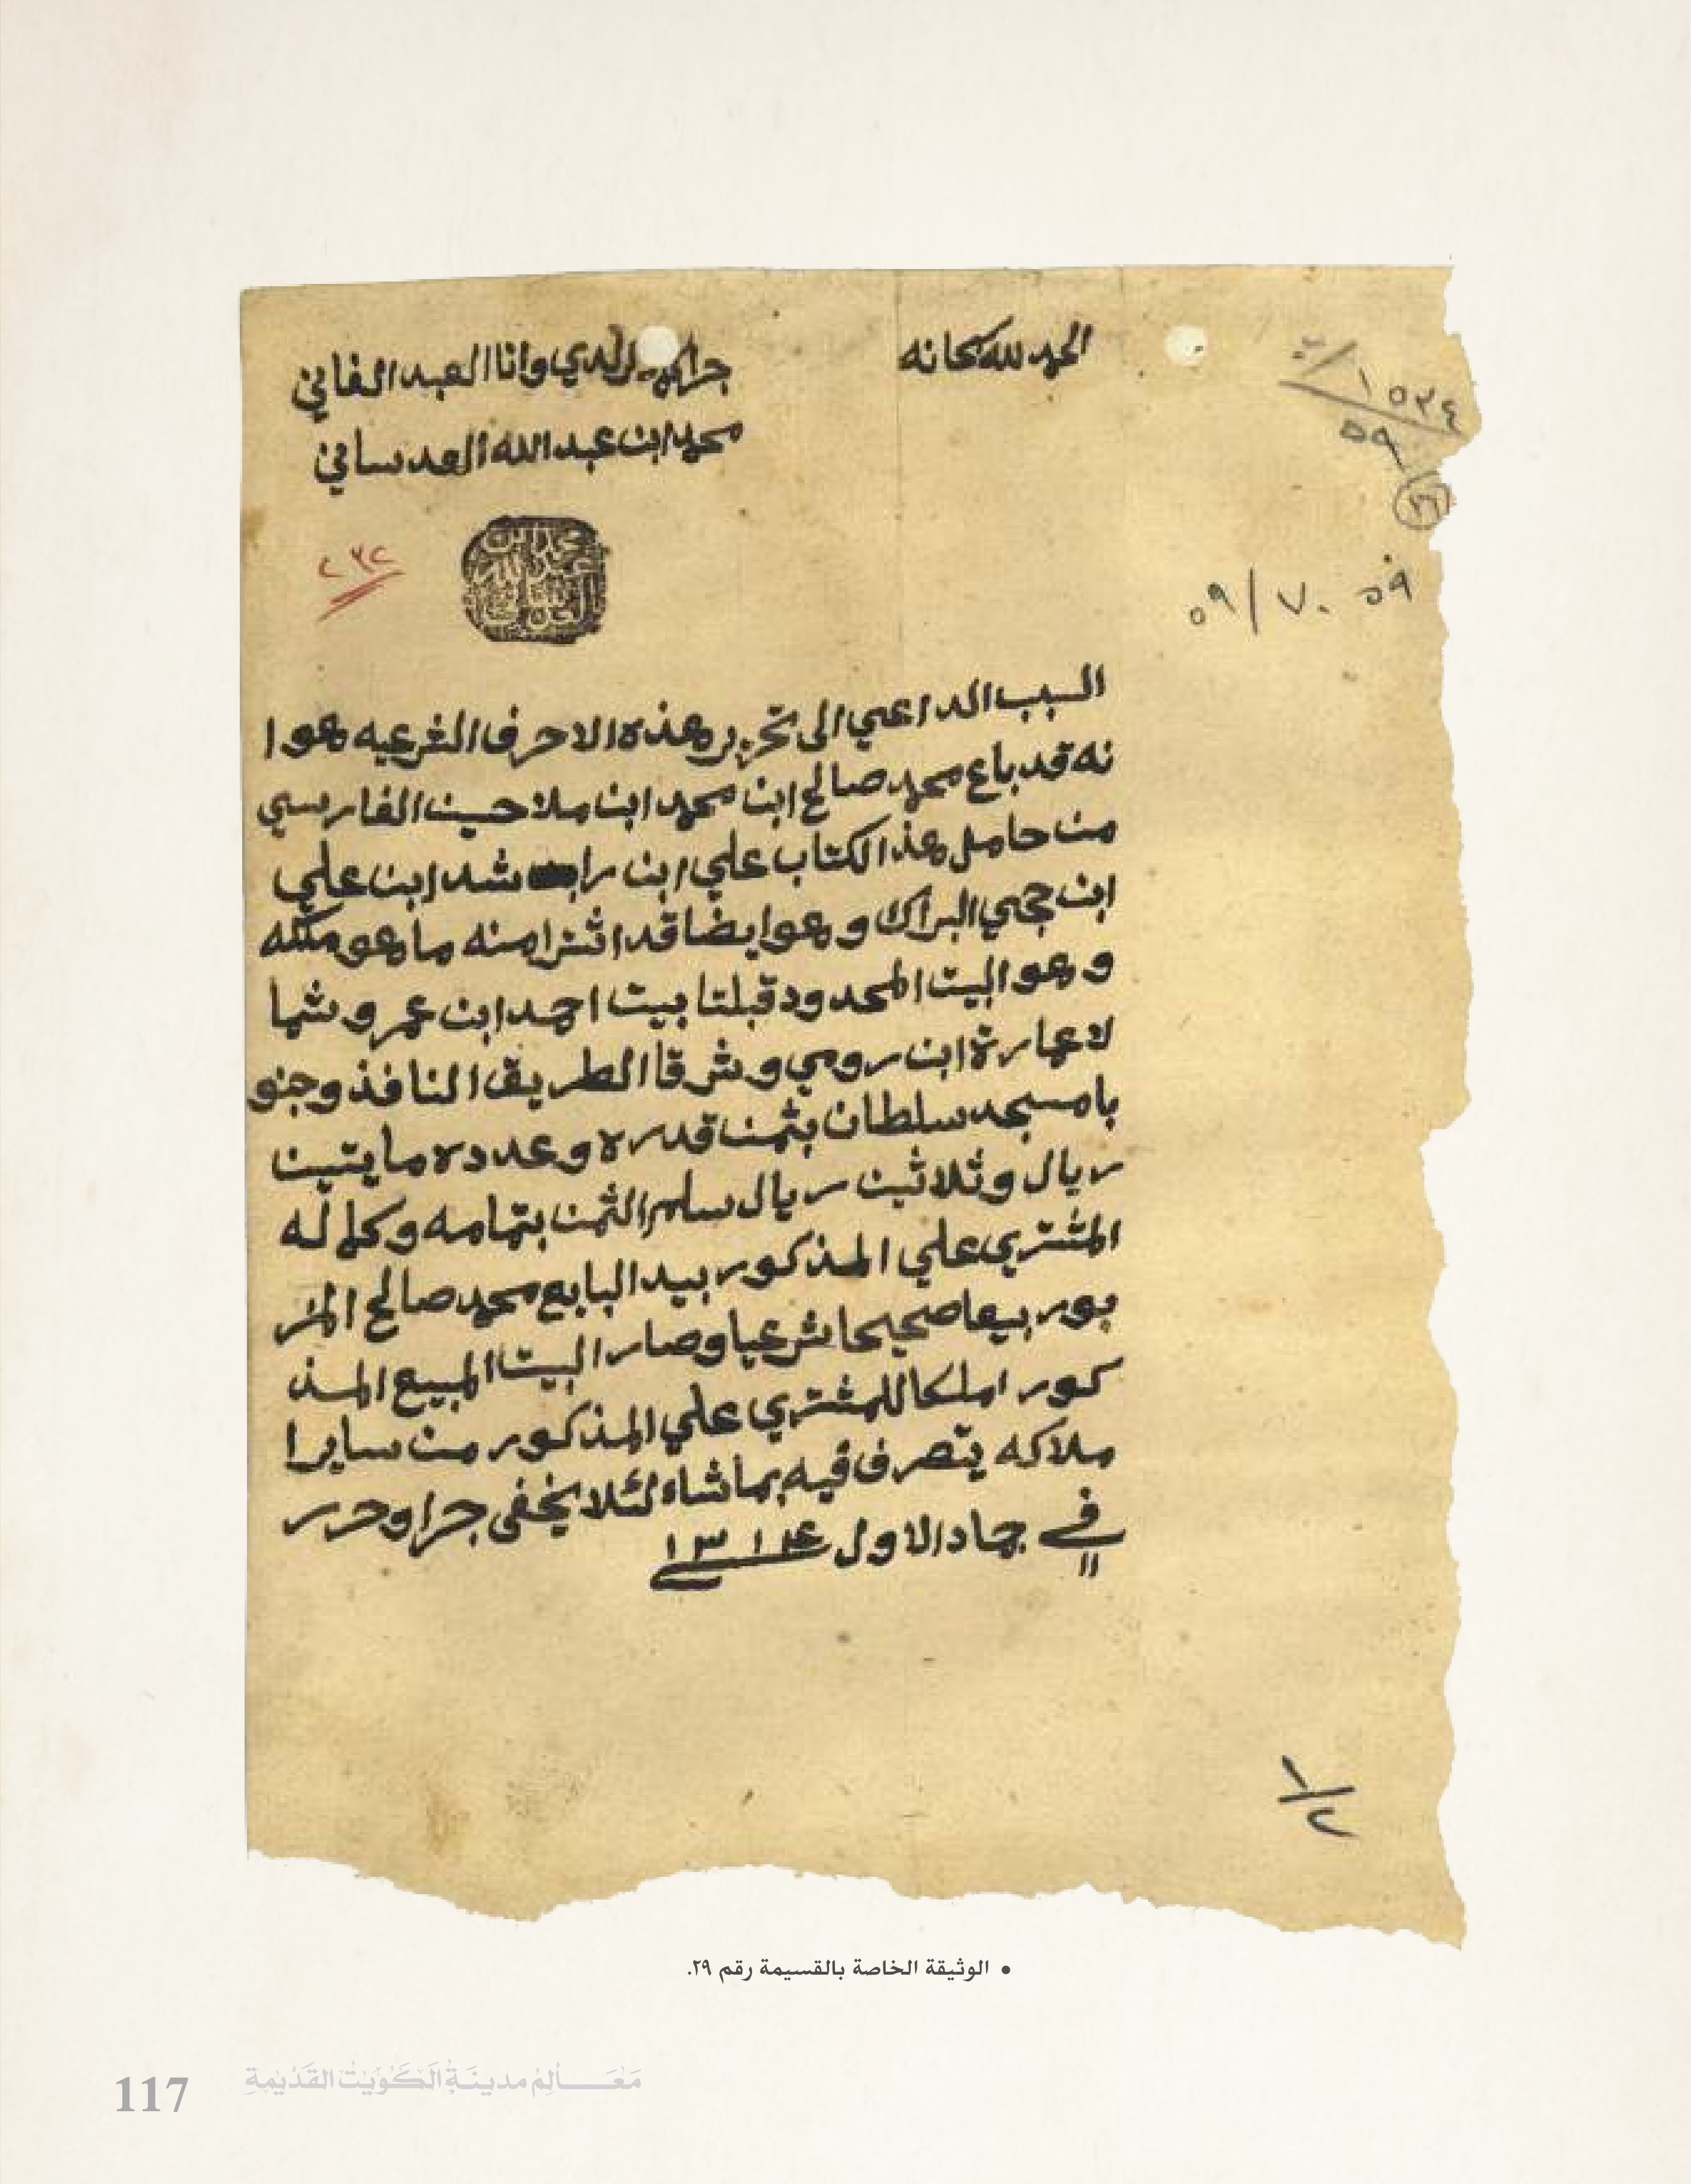 الحمد لله سبحانه
جرا لدي وانا العبد الفاني
محمد ابن عبد الله العدساني
١٥٣٤
٥٩
٢٦
٥٩ ٧٠/٥٩
٢٣٢
السبب الداعي الى تحرير هذه الاحرف الشرعيه هوا
نه قد باع محمد صالح ابن محمد ابن ملا حسين الفارسي
من حامل هذا الكتاب علي ابن راشد ابن علي
ابن حجي البراك وهو ايضا قد اشترا منه ما هو ملكه
وهو البيت المحدود قبلتا بيت احمد ابن عمر وشما
لا عمارة ابن رومي وشرقا الطريق النافذ وجنو
با مسجد سلطان بثمن قدره وعدده مايتين
ريال وثلاثين ريال سلم الثمن بتمامه وكماله
المشتري علي المذكور بيد البايع محمد صالح المز
بور بيعا صحيحا شرعيا وصار البيت المبيع المذ
كور املكا للمشتري علي المذكور من ساير ا
ملاكه يتصرف فيه بما شاء لئلا يخفى جرا وحرر
في ١١ جماد الاول ١٣١٤
١/٢
• الوثيقة الخاصة بالقسيمة رقم ٢٩.
معالم مدينة الكويت القديمة
117